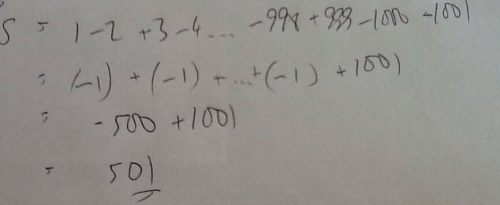 S = 1 - 2 + 3 - 4 ... - 998 + 999 - 1000 - 1001
= (-1) + (-1) + ... + (-1) + 1001
= -500 + 1001
= 501